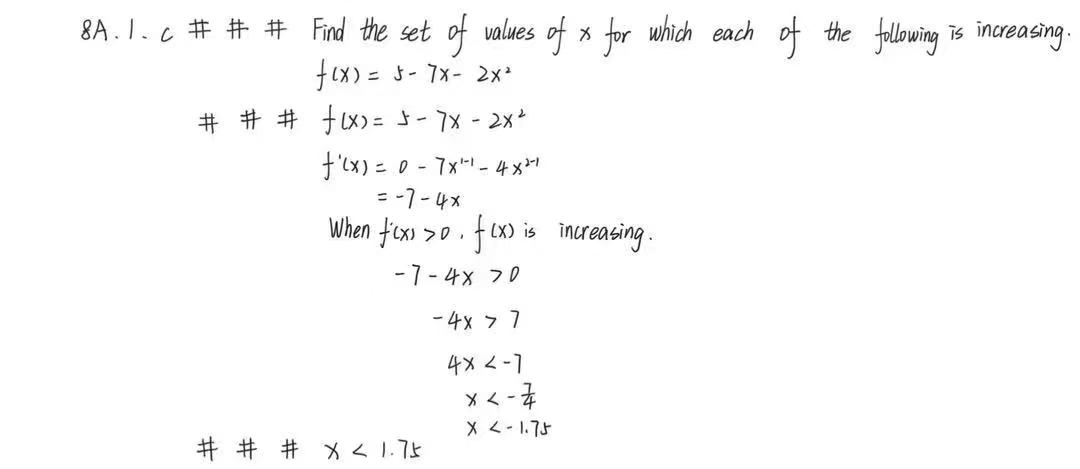 8A.1.c # # # Find the set of values of x for which each of the following is increasing.
f(x) = 5 - 7x - 2x²
# # # f(x) = 5 - 7x - 2x²
f'(x) = 0 - 7x¹⁻¹ - 4x²⁻¹
= -7 - 4x
When f'(x) > 0, f(x) is increasing.
-7 - 4x > 0
-4x > 7
4x < -7
x < -7/4
x < -1.75
# # # x < 1.75